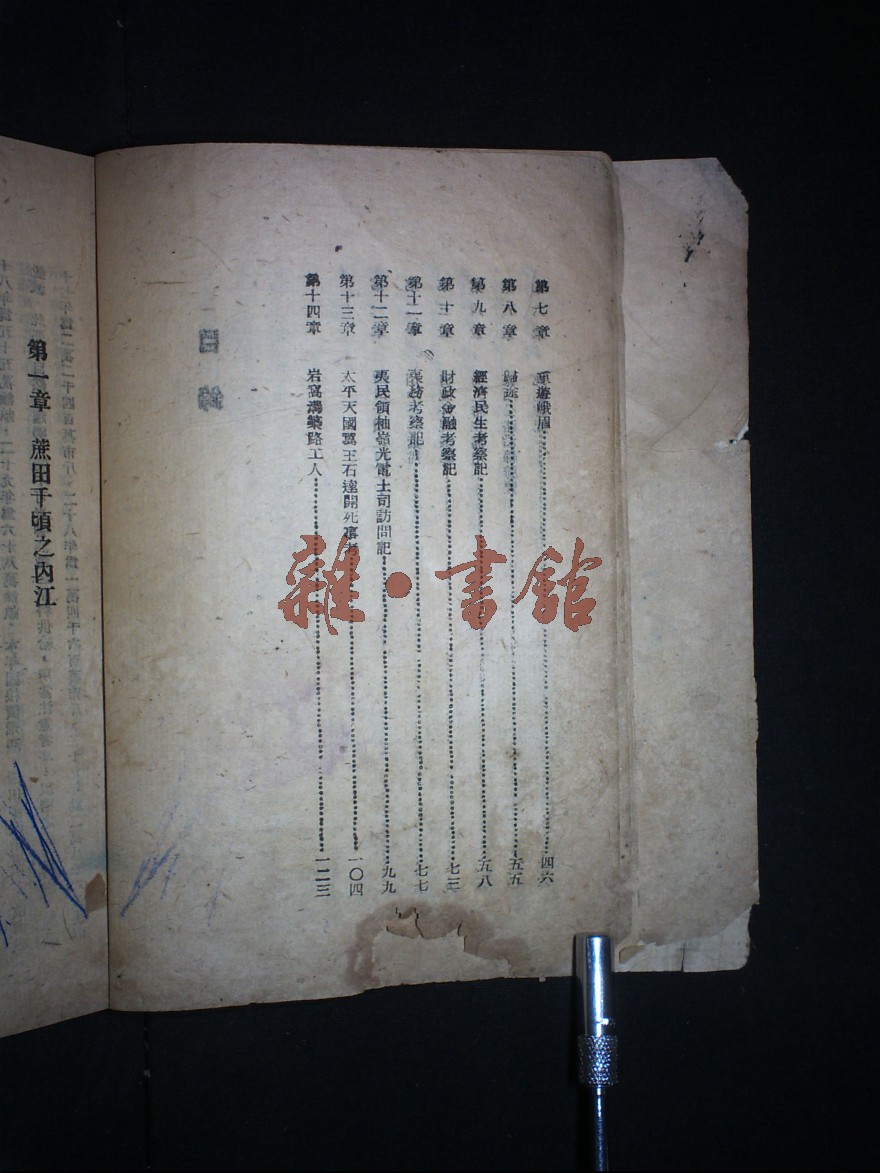 第七章 重遊峨眉……四六
第八章 歸途……五五
第九章 經濟民生考察記……五八
第十章 財政金融考察記……七三
第十一章 夷務考察記……七七
第十二章 夷民領袖嶺光電土司訪問記……九九
第十三章 太平天國翼王石達開死事考……一〇四
第十四章 岩窩溝築路工人……一二三
目錄
第一章 蔗田千頃之內江
雜·書館